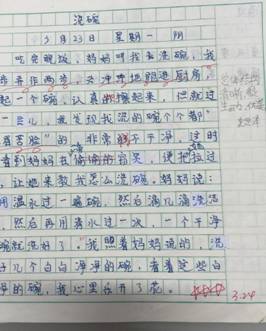 洗碗
3月23日 星期一 阴
吃完晚饭，妈妈叫我去洗碗，我
三步并作两步，兴冲冲地跑进厨房，
起一个碗，认真的擦起来，但就过
一会儿，我发现我洗的碗个个都
花"脸"的，非常不干净，这时
看到妈妈在偷偷的笑，便把拉过
，让她来教我怎么洗碗，妈妈说：
用温水过一遍碗，然后滴几滴洗洁
，然后再用清水过一次，一个干净
碗就洗好了。"我照着妈妈说的，洗
好几个白白净净的碗，看着这些白
净的碗，我心里乐开了花。
3.24